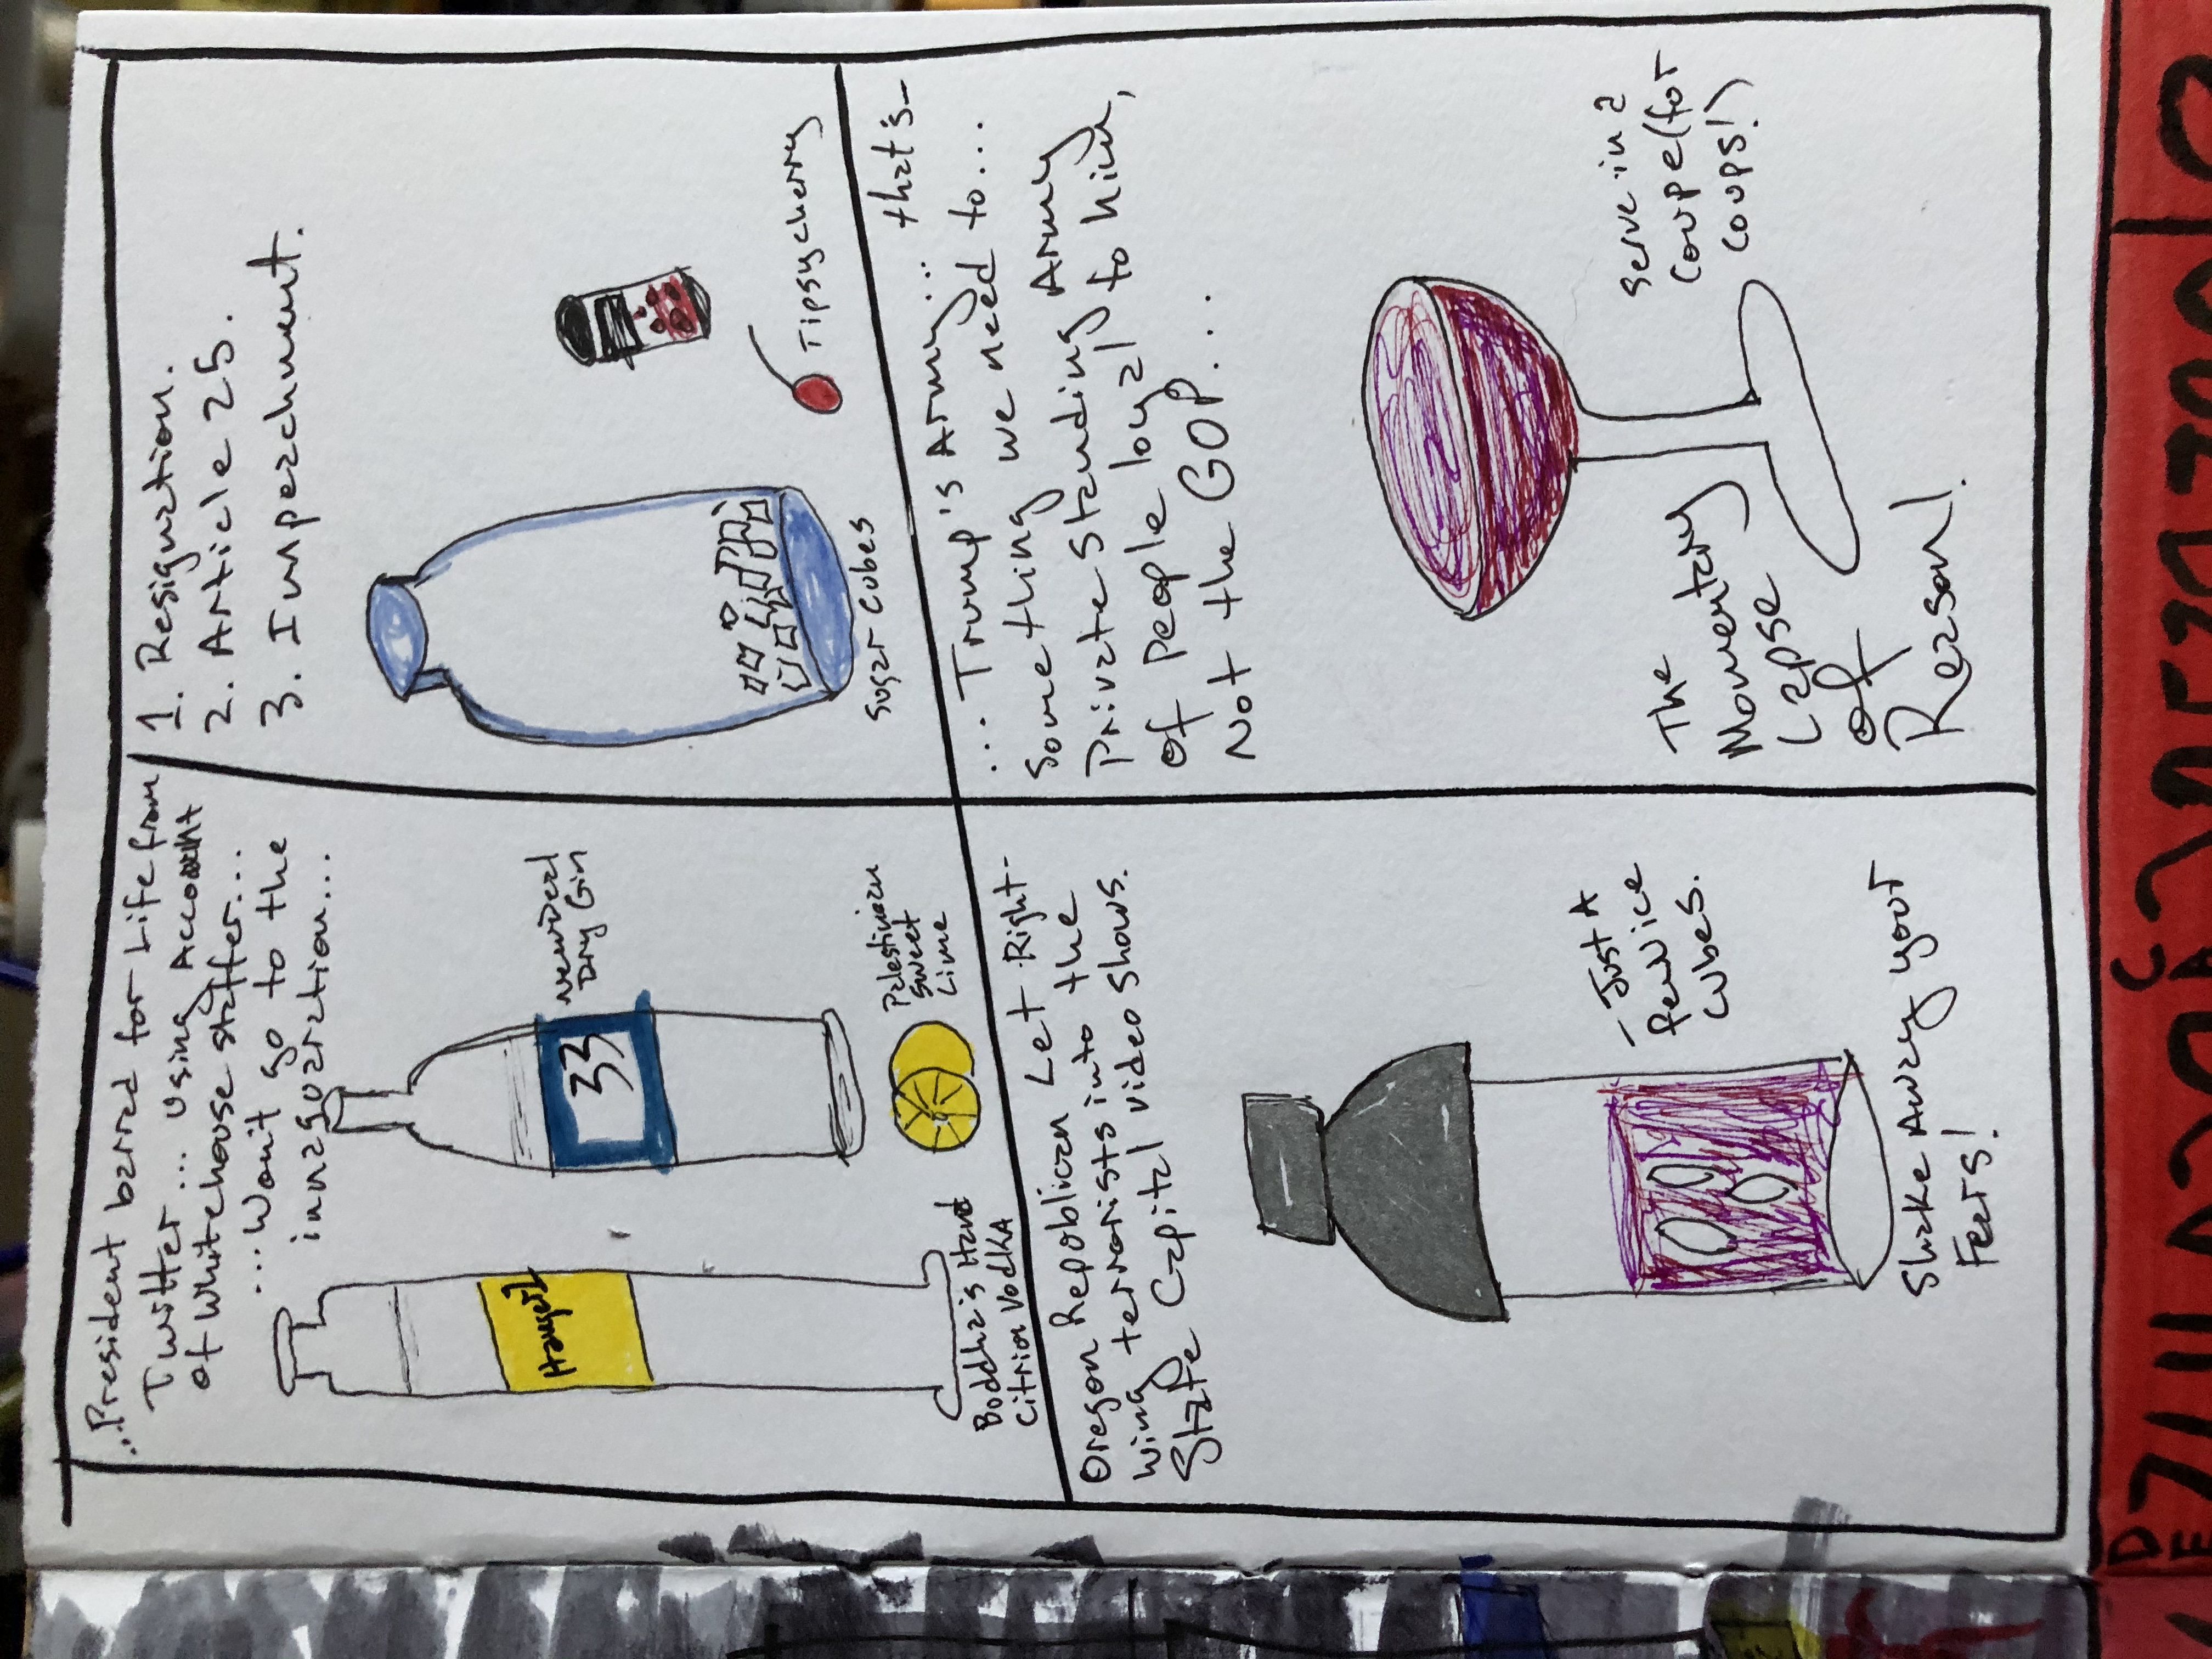 ...President barred for Life from
Twitter... using Account
of Whitehouse staffer...
...Won't go to the
inauguration...
Hanger 1
Buddha's Hand
Citrion Vodka
33
Dry Gin
Palestinian
Sweet
Lime
1. Resignation.
2. Article 25.
3. Impeachment.
Sugar Cubes
Tipsycherry
Oregon Repoblican Let Right-
wing terrorists into the
State Capital video shows.
- Just A
few ice
cubes.
Shake Away your
Feers!
...Trump's Army... that's
something we need to...
Private standing Army
of people loyal to him,
Not the GOP...
Serve in a
coupe (for
coups!)
The
Momentary
Lapse
of
Reason!